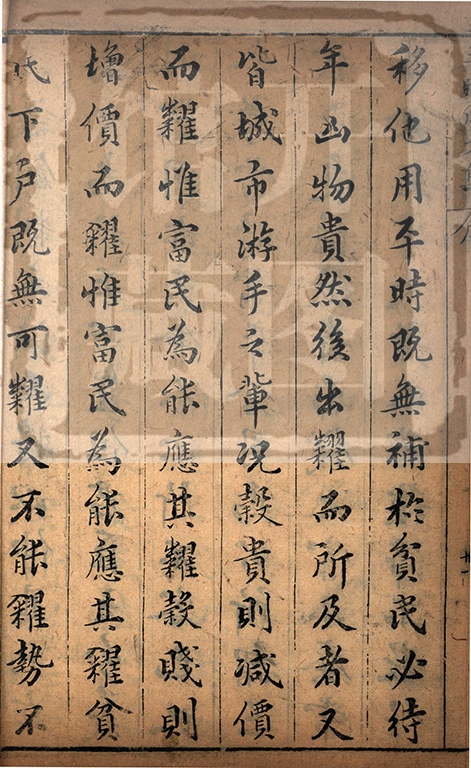 移他用平時既無補於貧民必待
年凶物貴然後出糶而所及者又
皆城市游手之輩况穀貴則减價
而糶惟富民為能應其糶穀賤則
增價而糴惟富民為能應其糴貧
民下户既無可糶又不能糴勢不